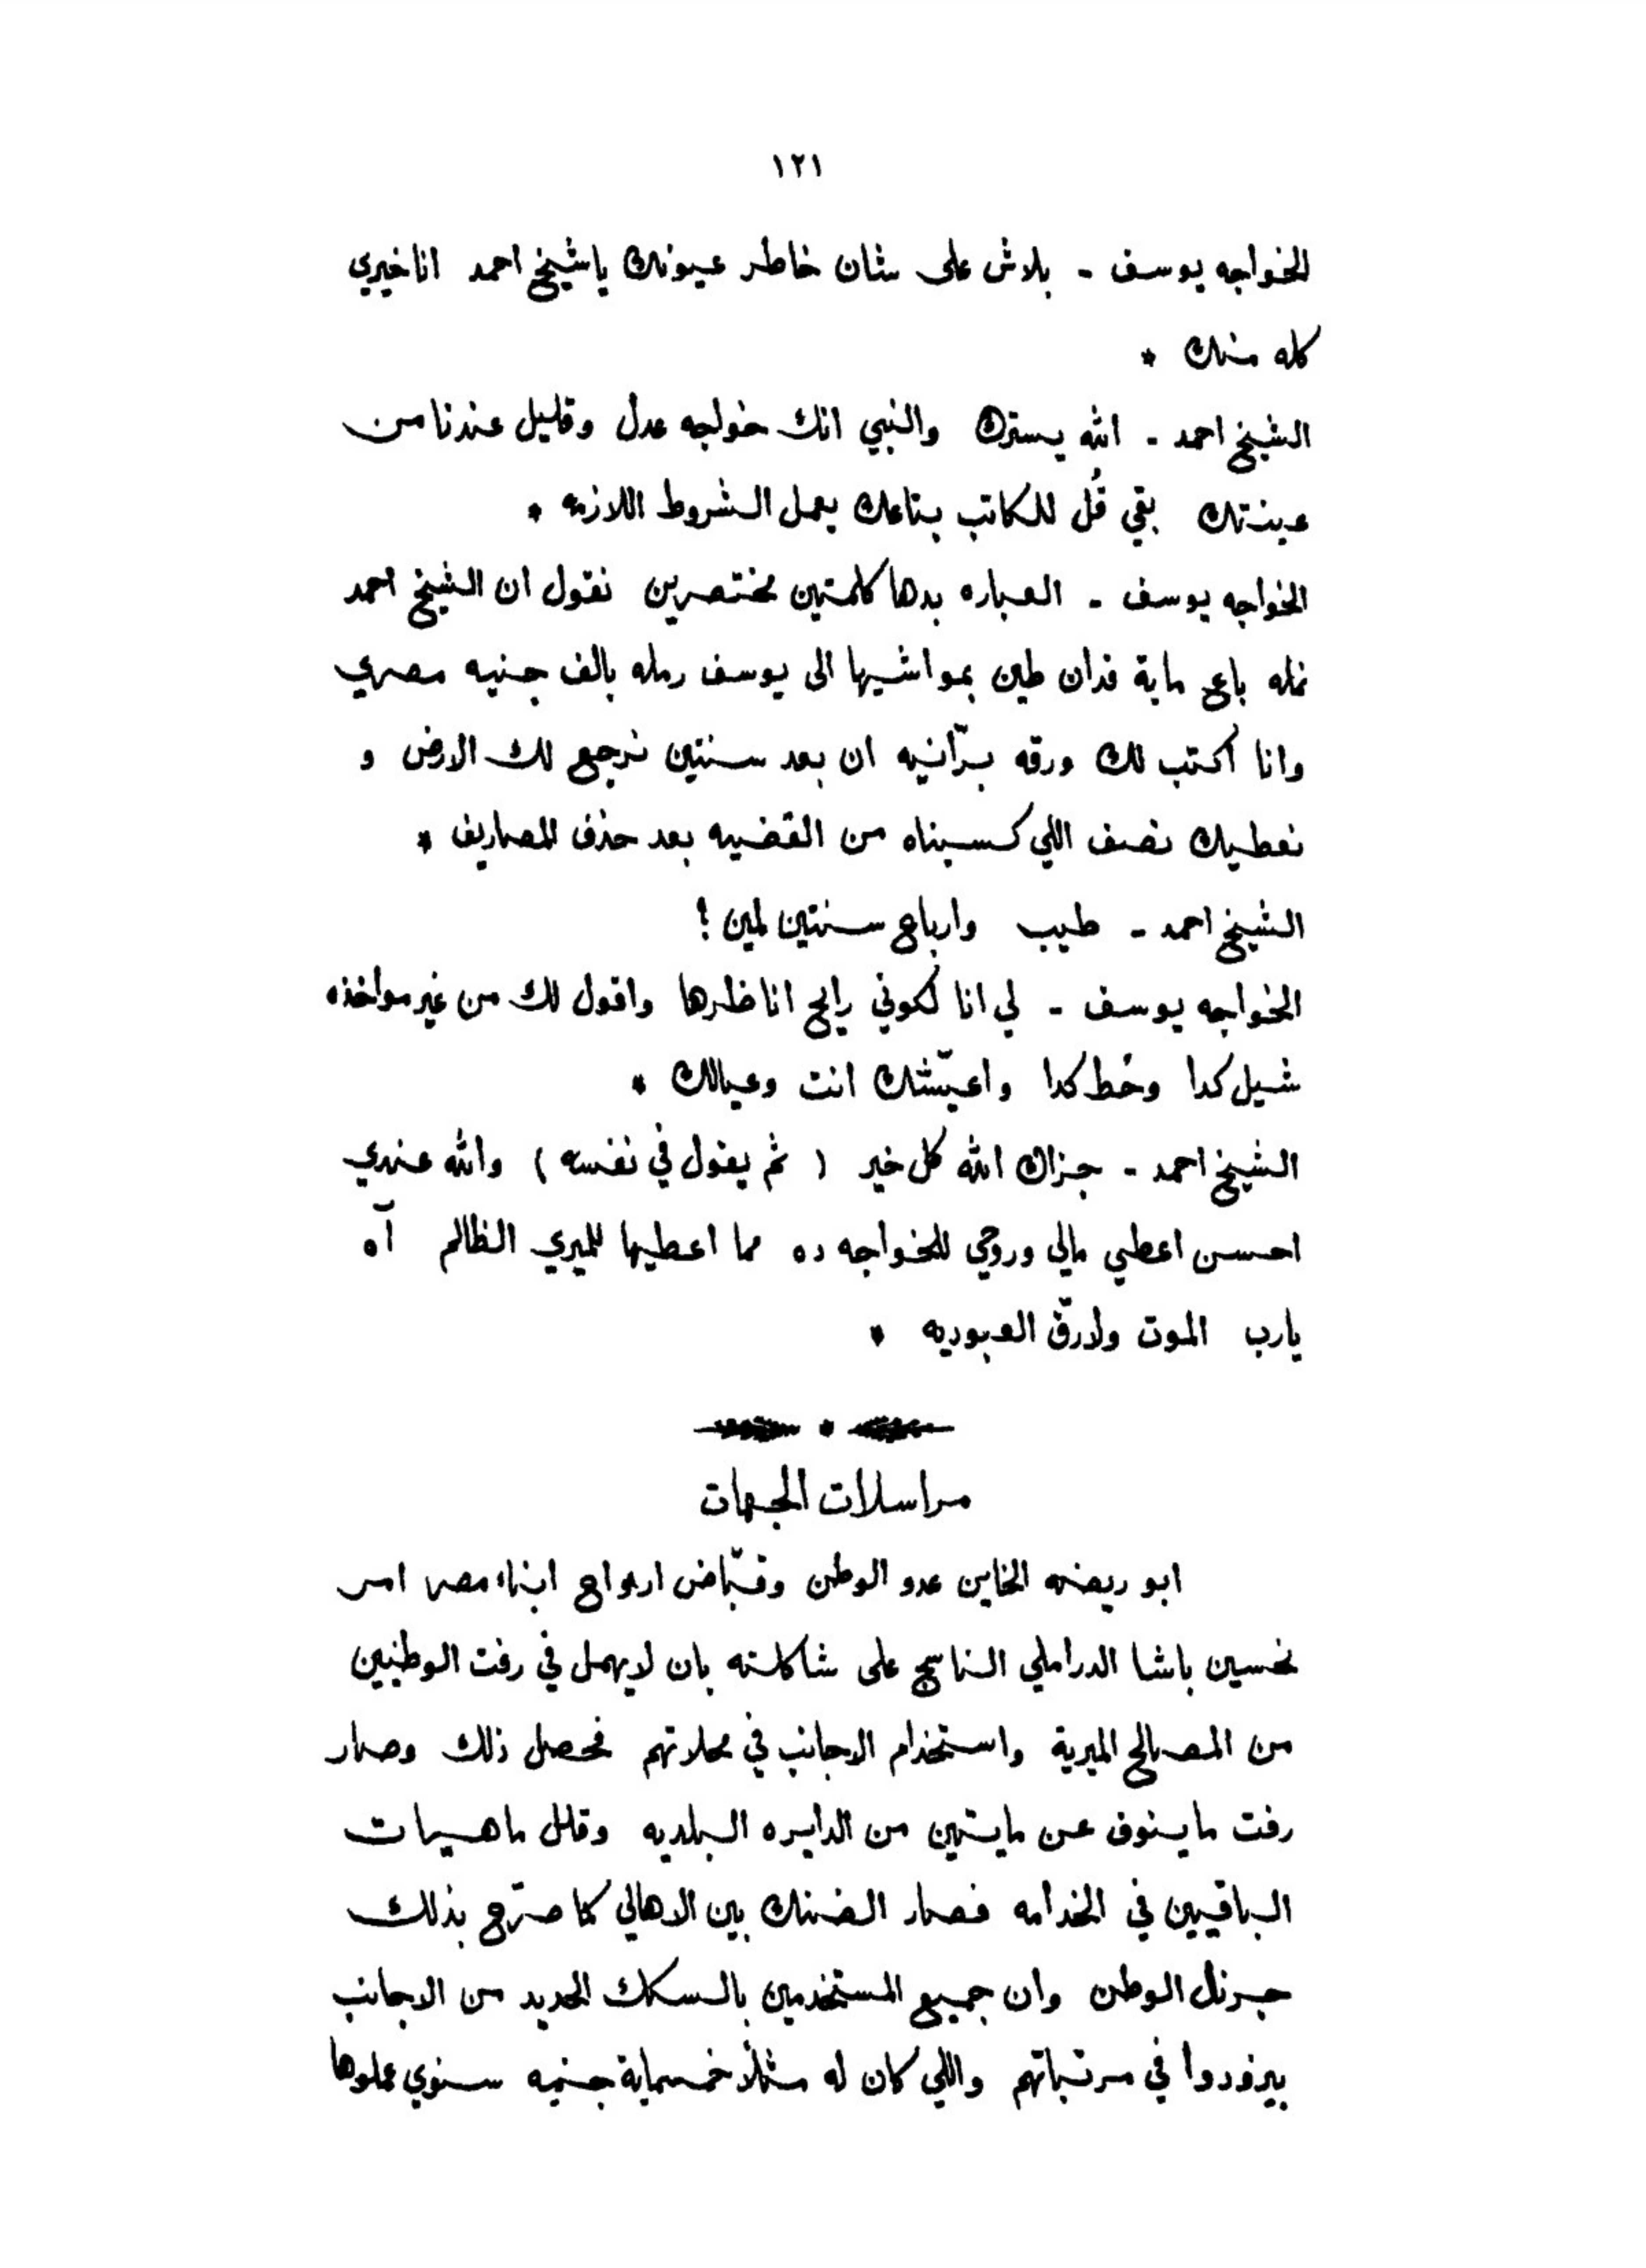 ١٢١
الخواجه يوسف - بلاش على شان خاطر عيونك ياشيخ احمد اناخيري
كله منك *
الشيخ احمد - الله يسترك والنبي انك خواجه عدل وقليل عندنا من
عينتك بقي قُل للكاتب بتاعك يعمل الشروط اللازمه *
الخواجه يوسف - العباره بدها كلمتين مختصرين نقول ان الشيخ احمد
نمله باع ماية فدان طين بمواشيها الى يوسف رمله بالف جنيه مصري
وانا اكتب لك ورقه برّانيه ان بعد سنتين نرجع لك الارض و
نعطيك نصف اللي كسبناه من القضيه بعد حذف المصاريف *
الشيخ احمد - طيب وارباع سنتين لمين !
الخواجه يوسف - لي انا لكوني رايح اناظرها واقول لك من غير مواخذه
شيل كدا وحُط كدا واعيّشك انت وعيالك *
الشيخ احمد - جزاك الله كل خير ( ثم يقول في نفسه ) والله عندي
احسن اعطي مالي وروحي للخواجه ده مما اعطيها للميري الظالم آه
يارب الموت ولارقّ العبوديه *
مراسلات الجهات
ابو ريضه الخاين عدو الوطن وقبّاض ارواح ابناء مصر امر
لحسين باشا الدراملي الناسج على شاكلته بان لايهمل في رفت الوطنيين
من المصالح الميرية واستخدام الاجانب في محلاتهم فحصل ذلك وصار
رفت ماينوف عن مايتين من الدايره البلديه وقلل ماهيات
الباقيين في الخدامه فصار الضنك بين الاهالي كما صرّح بذلك
جرنال الوطن وان جميع المستخدمين بالسكك الحديد من الاجانب
بيزودوا في مرتباتهم واللي كان له مثلاً خمسماية جنيه سنوي عملوها